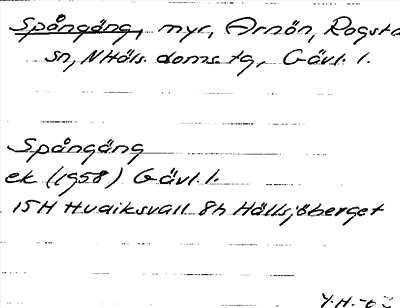 Spångäng, myr, Arnön, Rogsta
sn, NHäls. doms. tg, Gävl. l.
Spångäng
ek (1958) Gävl. l.
15H Hudiksvall 8h Hällsjöberget
Y.H.